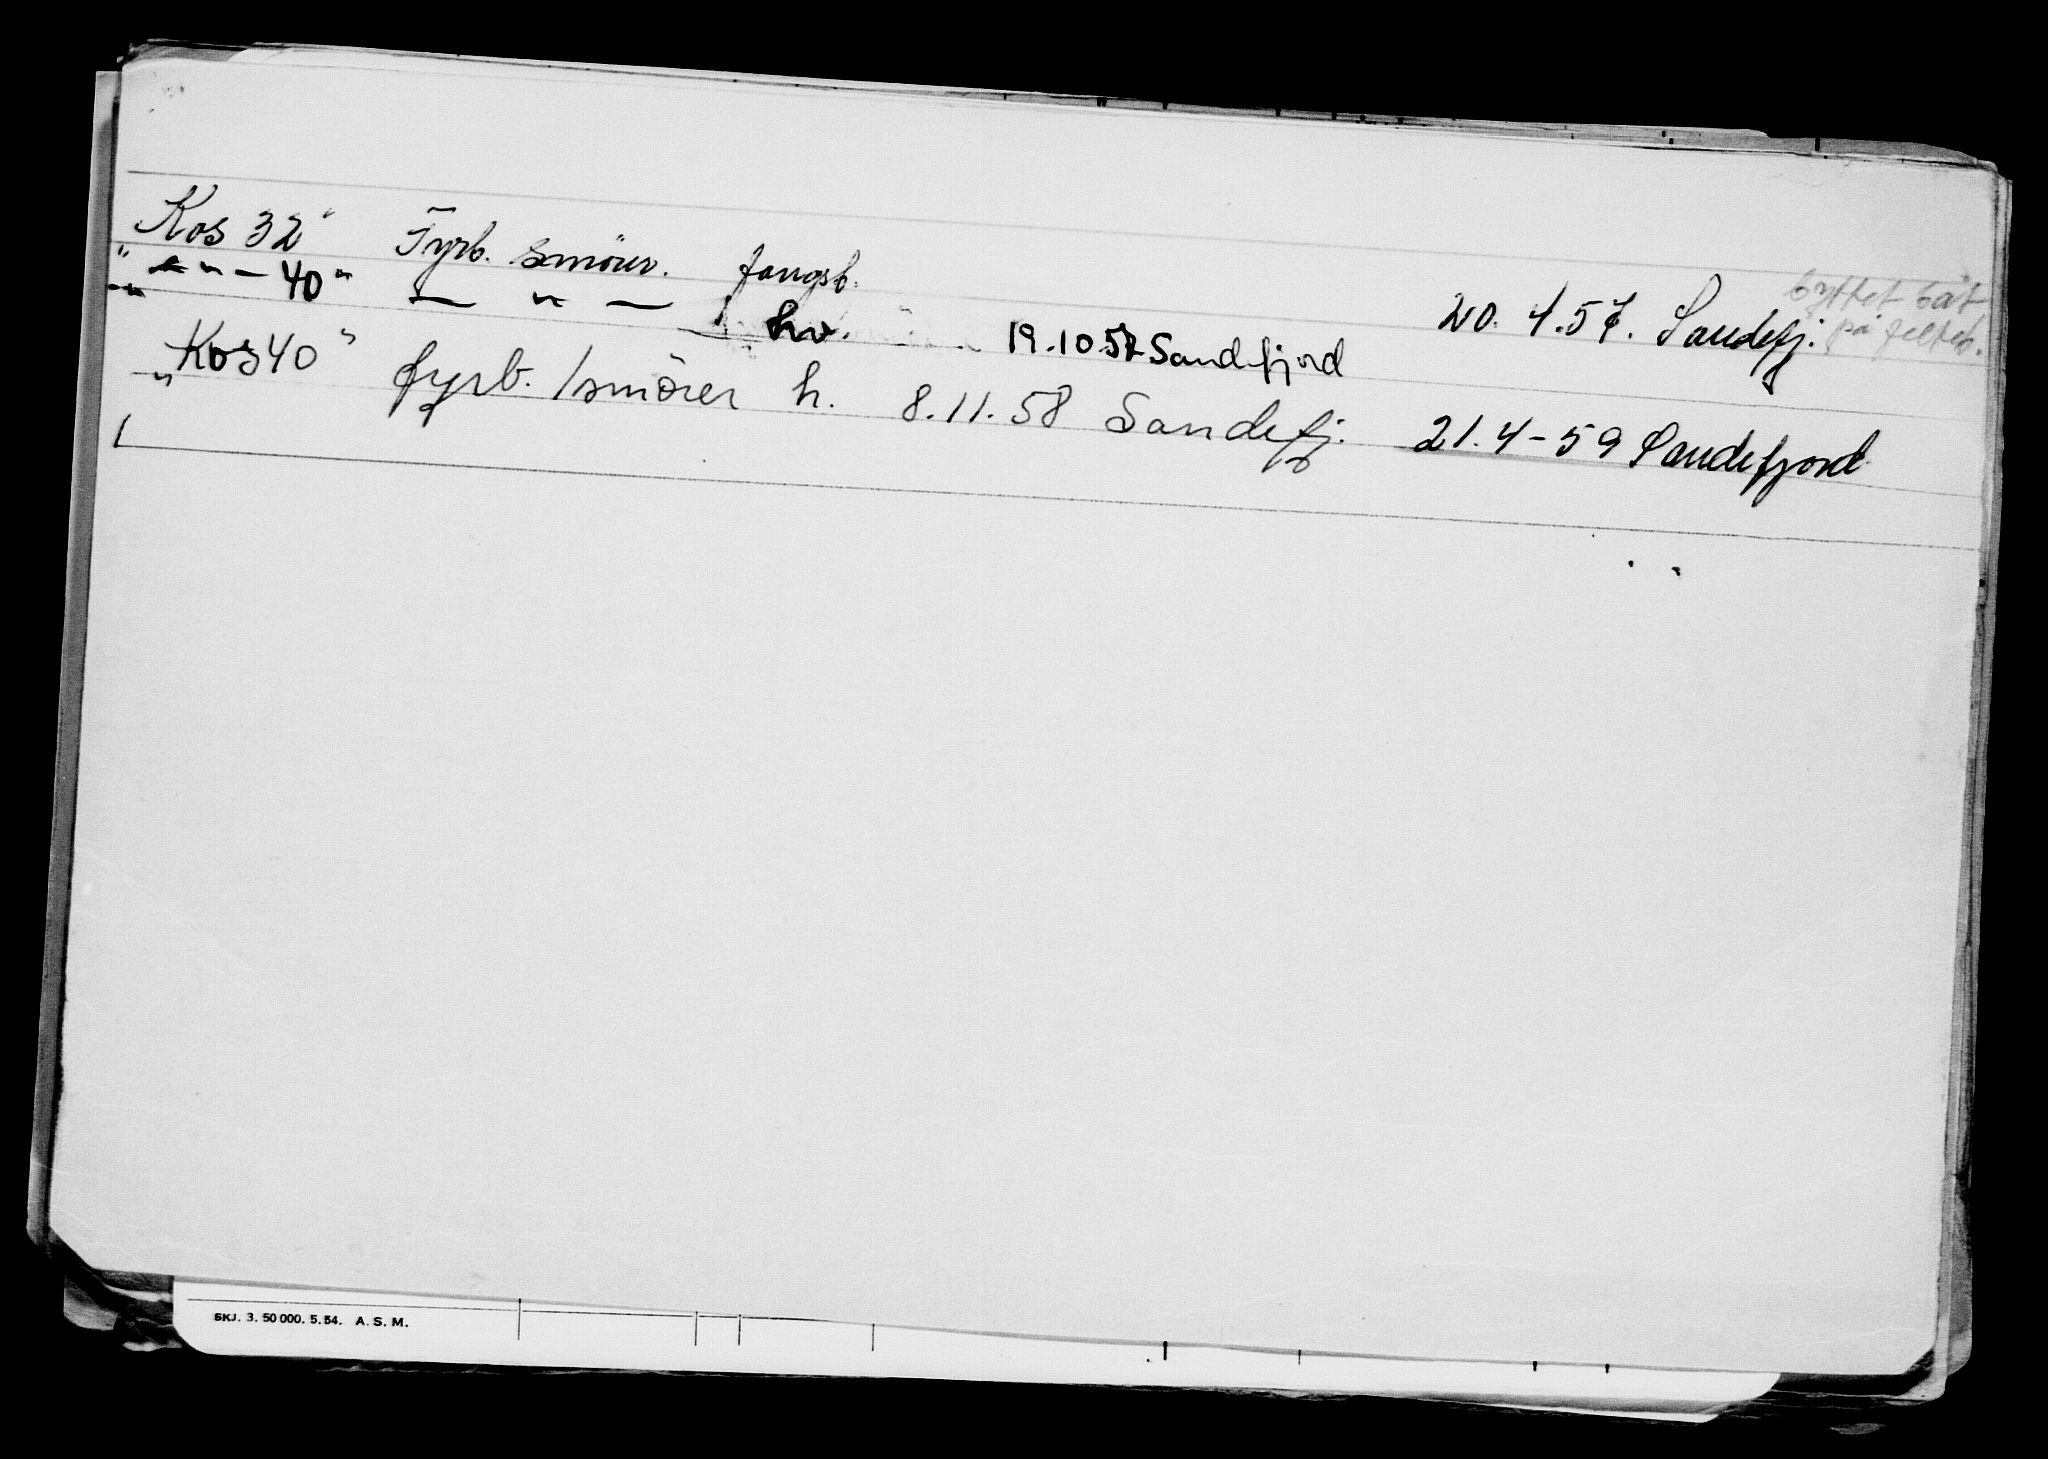 "Kos 32" Fyrb. smörer. fangsb. 20. 4.57. Sandefj. byttet båt på feltet.
" — " — 40" — " — hv. 19.10 57 Sandefjord
"Kos 40" fyrb./smörer h. 8.11.58 Sandefj. 21.4-59 Sandefjord
SKJ. 3. 50 000. 5. 54. A. S. M.